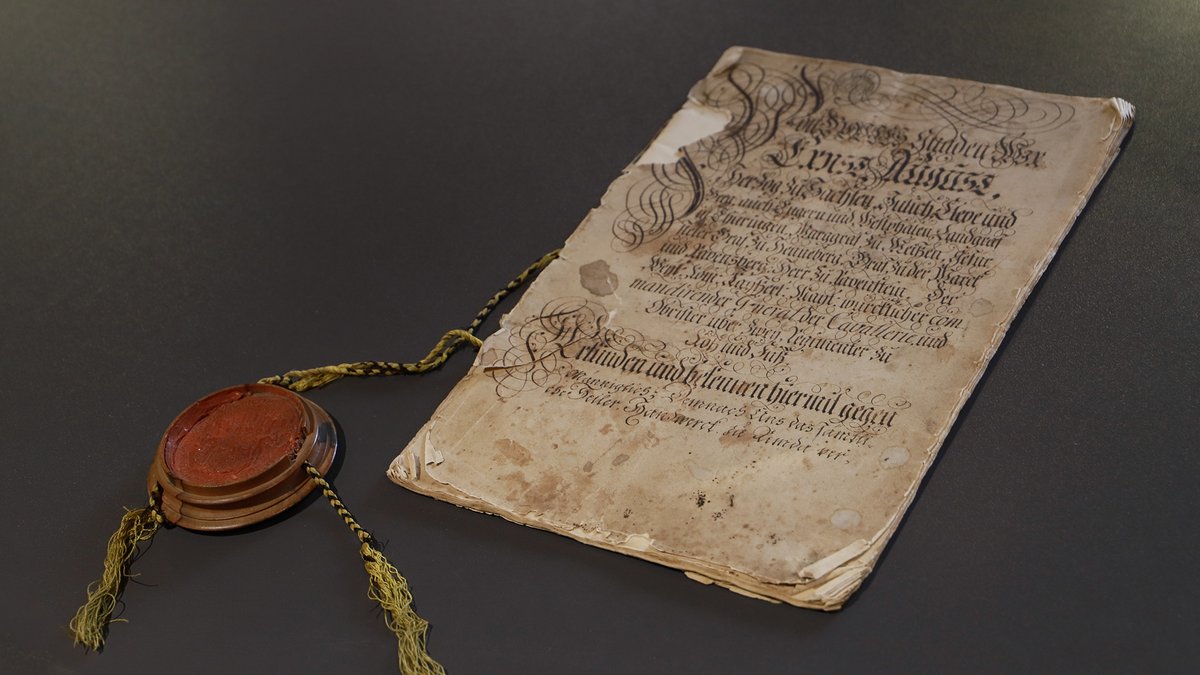 Von Gottes Gnaden Wir
Ernst August,
Herzog zu Sachsen, Jülich, Cleve und
Berg, auch Engern und Westphalen, Landgraf
in Thüringen, Marggraf zu Meißen, Gefür
steter Graf zu Henneberg, Graf zu der Marck
und Ravensberg, Herr zu Ravenstein, Der
Röm. Kayserl. Mayt. würcklicher com
mandirender General der Cavallerie, und
Obrister über Regimenter zu
Roß und Fuß
Uhrkunden und bekennen hiermit gegen
Männiglich: Demnach Uns das sämtli
che Handwerck zu ver-